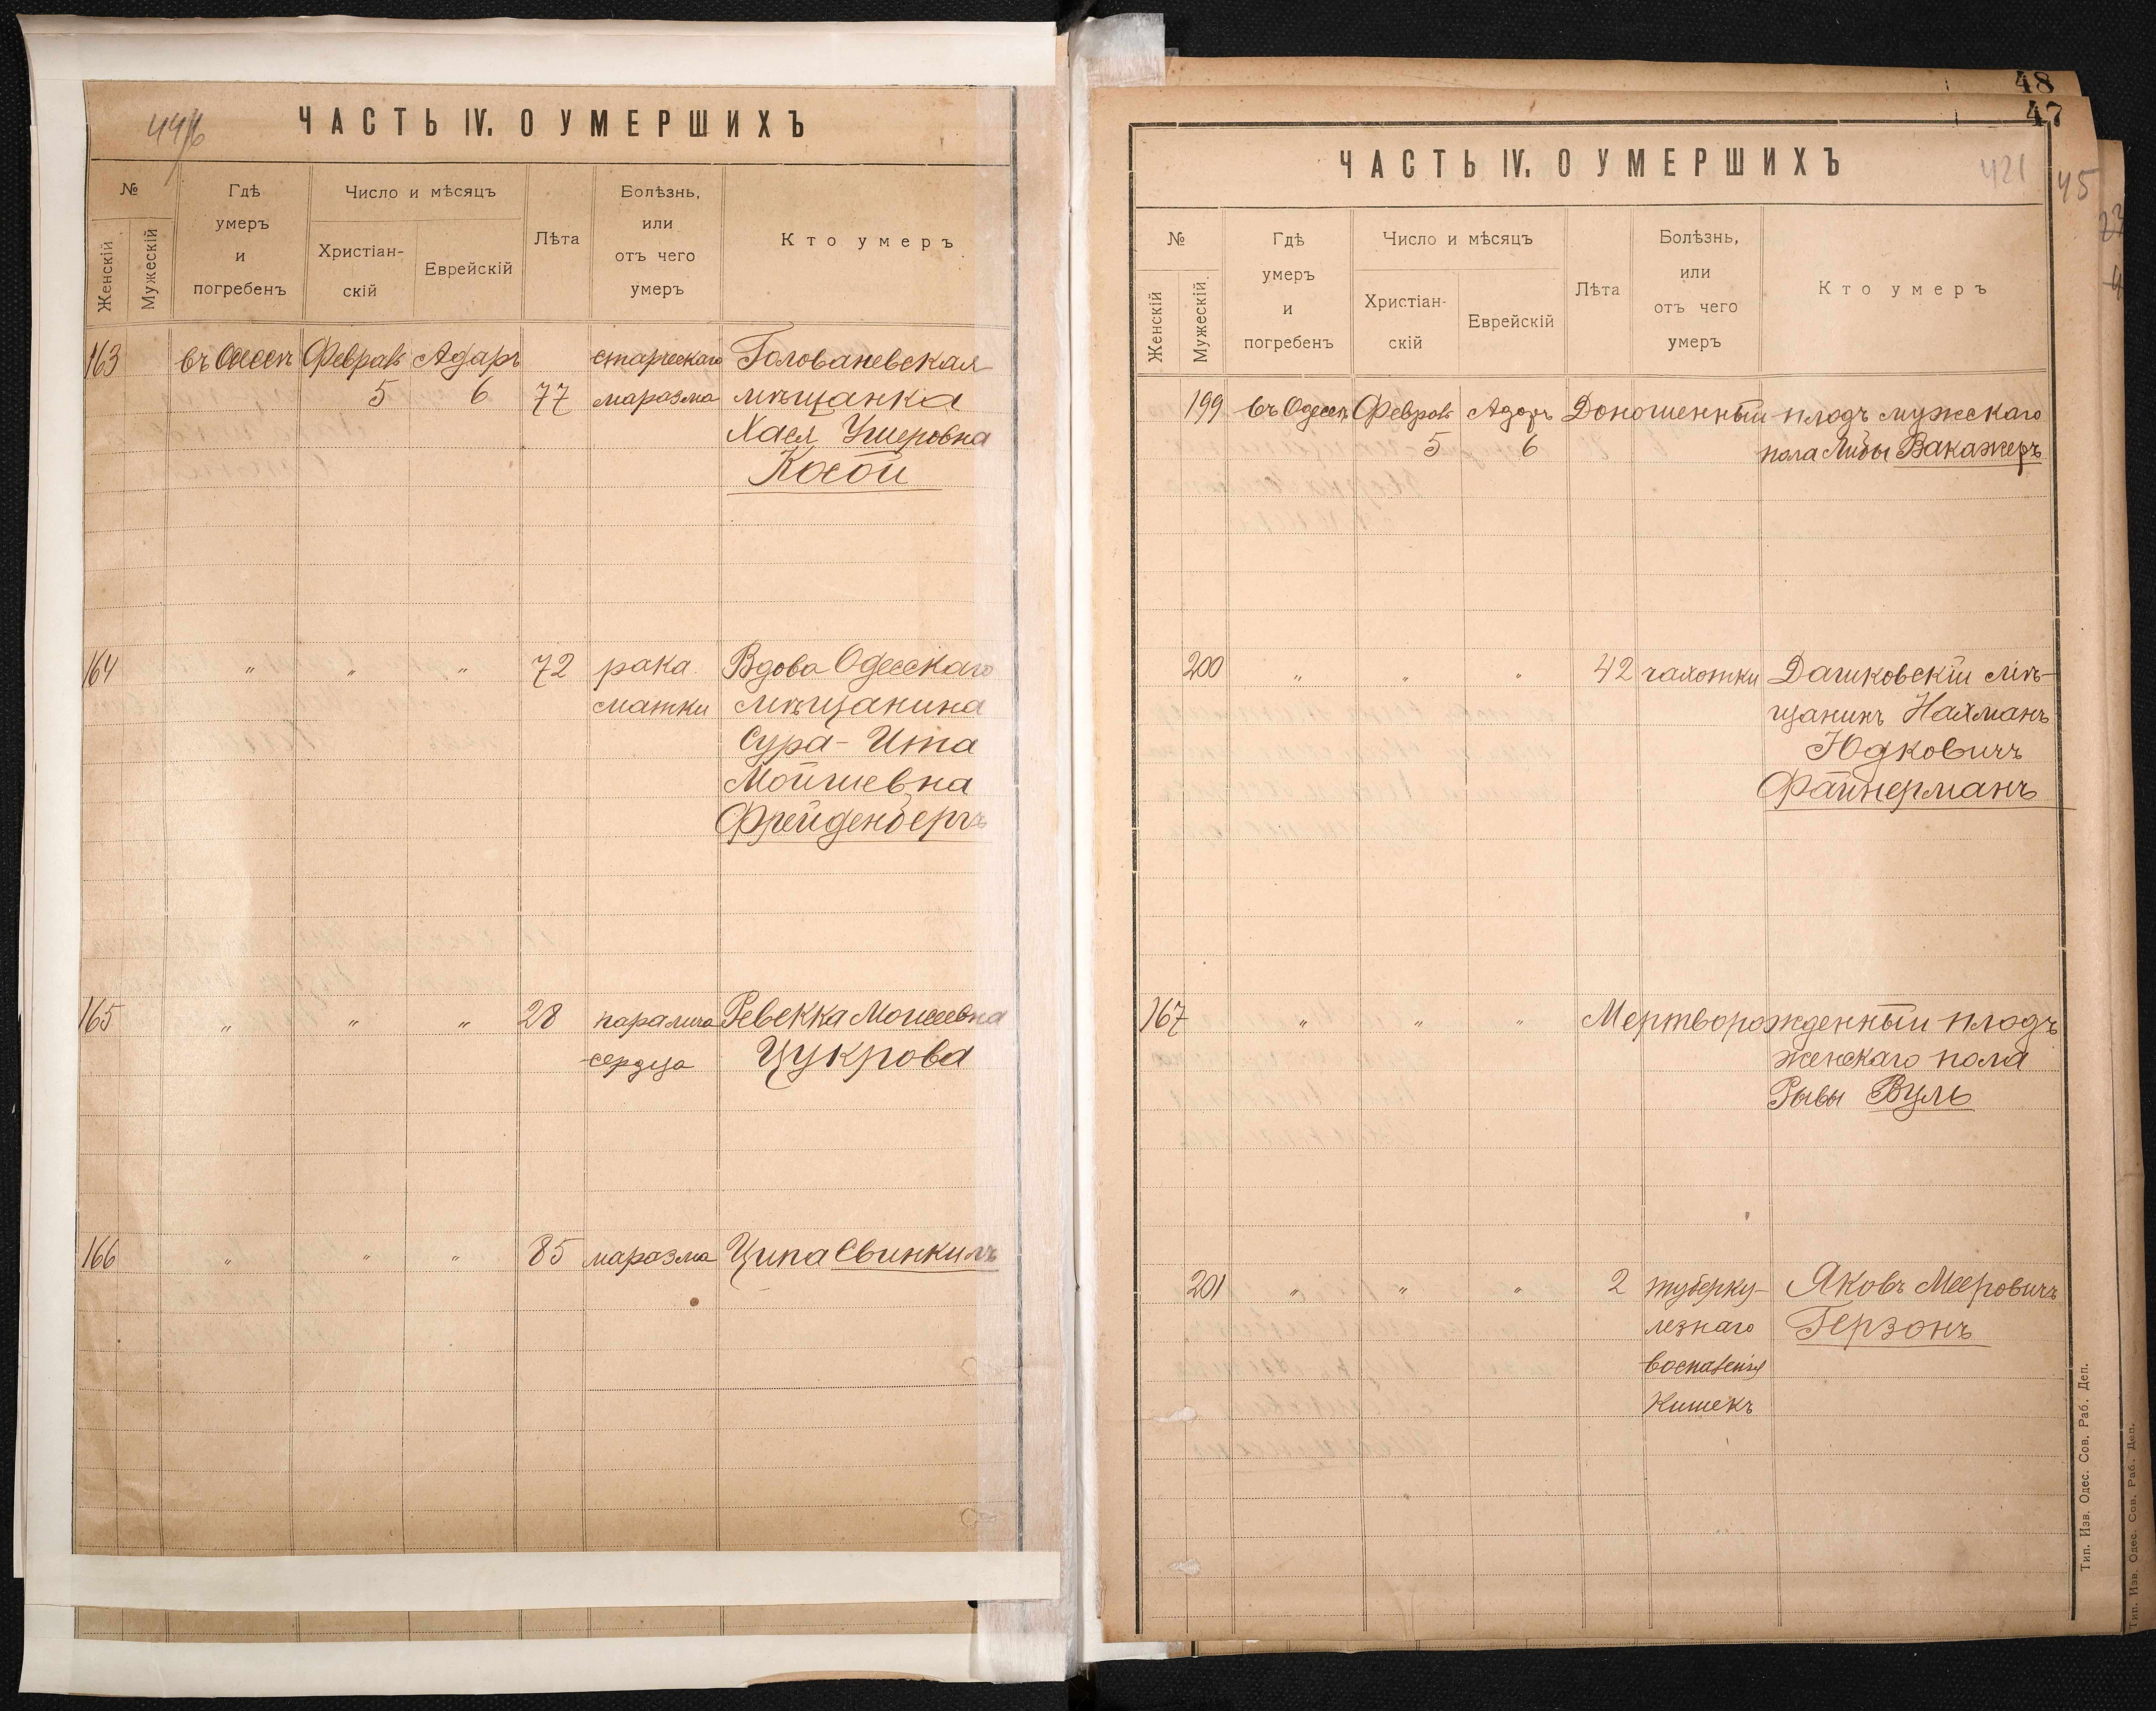 44/6
ЧАСТЬ IV. О УМЕРШИХЪ
№
Женскій
Мужескій
Гдѣ
умеръ
и
погребенъ
Число и мѣсяцъ
Христіан-
скій
Еврейскій
Лѣта
Болѣзнь,
или
отъ чего
умеръ
Кто умеръ
163 въ Одессѣ Феврав Адаръ старческаго Голованевская
5 6 77 маразма мѣщанка
Хася Ушеровна
Косой
164 " " " 72 рака Вдова Одесскаго
матки мѣщанина
Сура-Ита
Мойшевна
Фрейденбергъ
165 " " " 28 паралича Ревекка Моисеевна
сердца Цукрова
166 " " " 85 маразма Ципа Свинкинъ
48
47
ЧАСТЬ IV. О УМЕРШИХЪ
421
45
№
Женскій
Мужескій.
Гдѣ
умеръ
и
погребенъ
Число и мѣсяцъ
Христіан-
скій
Еврейскій
Лѣта
Болѣзнь,
или
отъ чего
умеръ
Кто умеръ
199 въ Одессѣ Феврав Адаръ Доношенный плодъ мужскаго
5 6 пола Либы Вакажеръ
200 " " " 42 чахотки Дашковскій мѣ-
щанинъ Нахманъ
Юдковичъ
Файнерманъ
167 " " " Мертворожденный плодъ
женскаго пола
Рывы Вуль
201 " " " 2 туберку- Яковъ Мееровичъ
лезнаго Герзонъ
воспаленія
Кишекъ
Тип. Изв. Одес. Сов. Раб. Деп.
Тип. Изв. Одес. Сов. Раб. Деп.